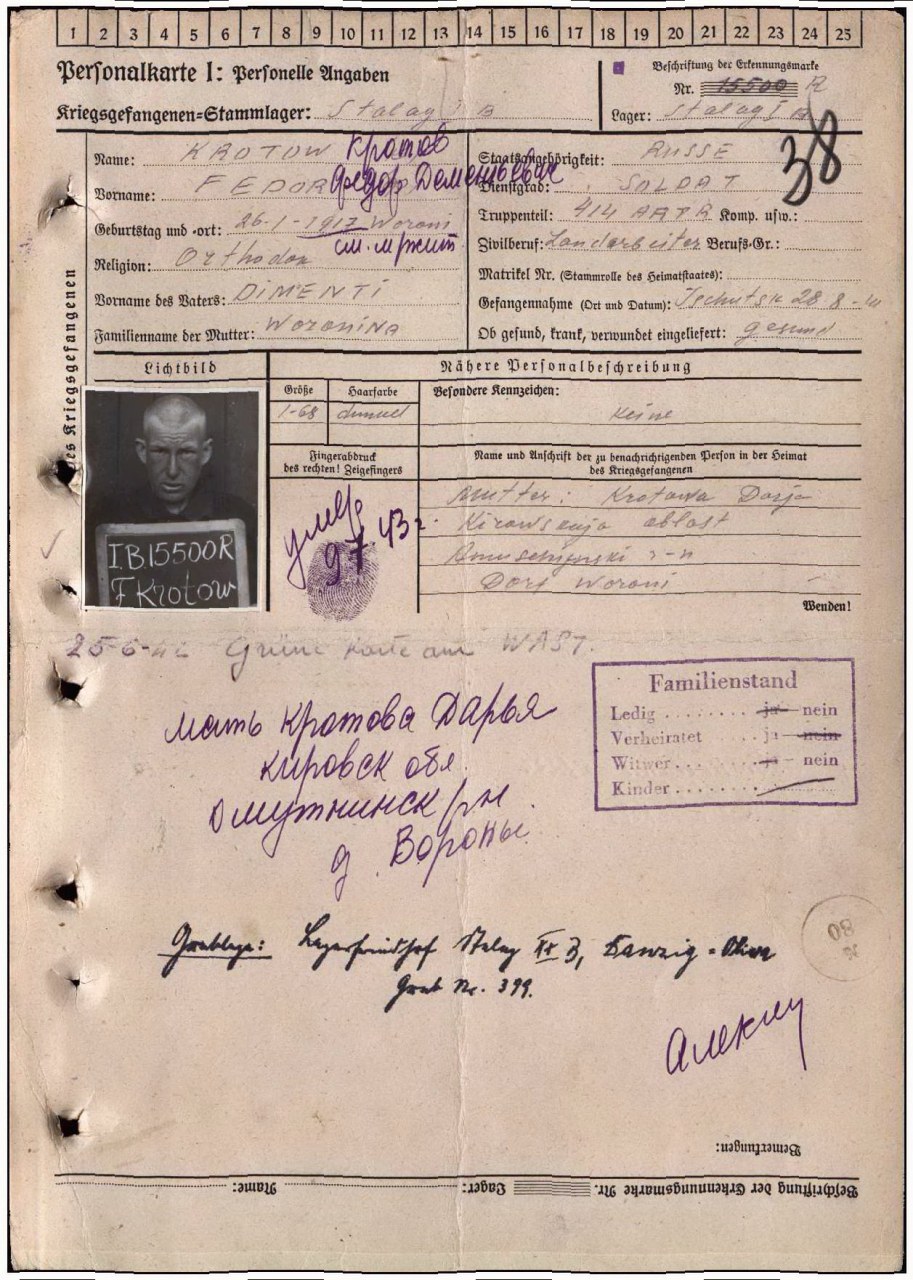 1 2 3 4 5 6 7 8 9 10 11 12 13 14 15 16 17 18 19 20 21 22 23 24 25
Personalkarte I: Personelle Angaben
Kriegsgefangenen-Stammlager: Stalag I B
Beschriftung der Erkennungsmarke
Nr. 15500 R
Lager: Stalag I B
38
des Kriegsgefangenen
Name: KROTOW Кротов
Vorname: FEDOR Федор Дементьевич
Geburtstag und -ort: 26-1-1917 Woroni
Religion: Orthodox
Vorname des Vaters: DIMENTI
Familienname der Mutter: WORONINA
Staatsangehörigkeit: RUSSE
Dienstgrad: SOLDAT
Truppenteil: 414 ARTR Komp. usw.:
Zivilberuf: Landarbeiter Berufs-Gr.:
Matrikel Nr. (Stammrolle des Heimatstaates):
Gefangennahme (Ort und Datum): 28-8-41
Ob gesund, krank, verwundet eingeliefert: gesund
Lichtbild
Nähere Personalbeschreibung
Größe
1-68
Haarfarbe
dunkel
Besondere Kennzeichen:
Keine
Fingerabdruck
des rechten! Zeigefingers
умер
9.7.43 г.
Name und Anschrift der zu benachrichtigenden Person in der Heimat
des Kriegsgefangenen
Mutter: Krotowa Darja
Kirowskaja oblast
r-n
Dorf Woroni
Wenden!
I.B15500R
F Krotow
25-6-42 Grüne Karte an WAST.
Familienstand
Ledig ja nein
Verheiratet ja nein
Witwer ja nein
Kinder
мать Кротова Дарья
Кировск обл.
Омутнинск р/н
д. Вороны
Grablage: Lagerfriedhof Stalag XX B, Danzig-Oliva
Grab Nr. 399.
80
Bemerkungen:
Beschriftung der Erkennungsmarke Nr. Lager: Name: